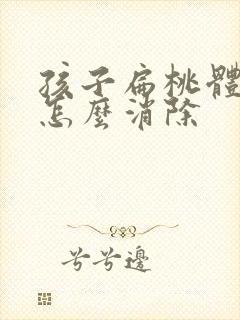 孩子扁桃體
怎麼消除
兮兮邊